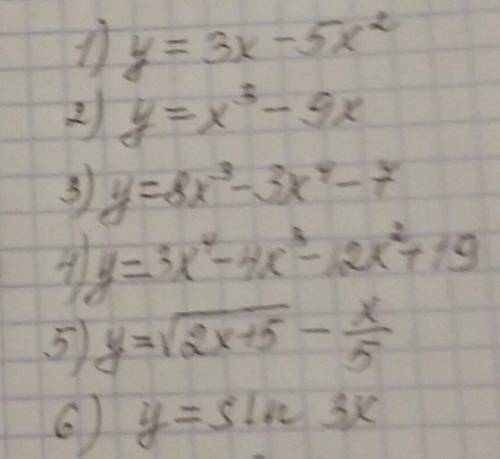 1) y = 3x - 5x²
2) y = x³ - 9x
3) y = 8x³ - 3x⁴ - 7
4) y = 3x⁴ - 4x³ - 12x² + 19
5) y = √(2x+5) - x/5
6) y = sin 3x